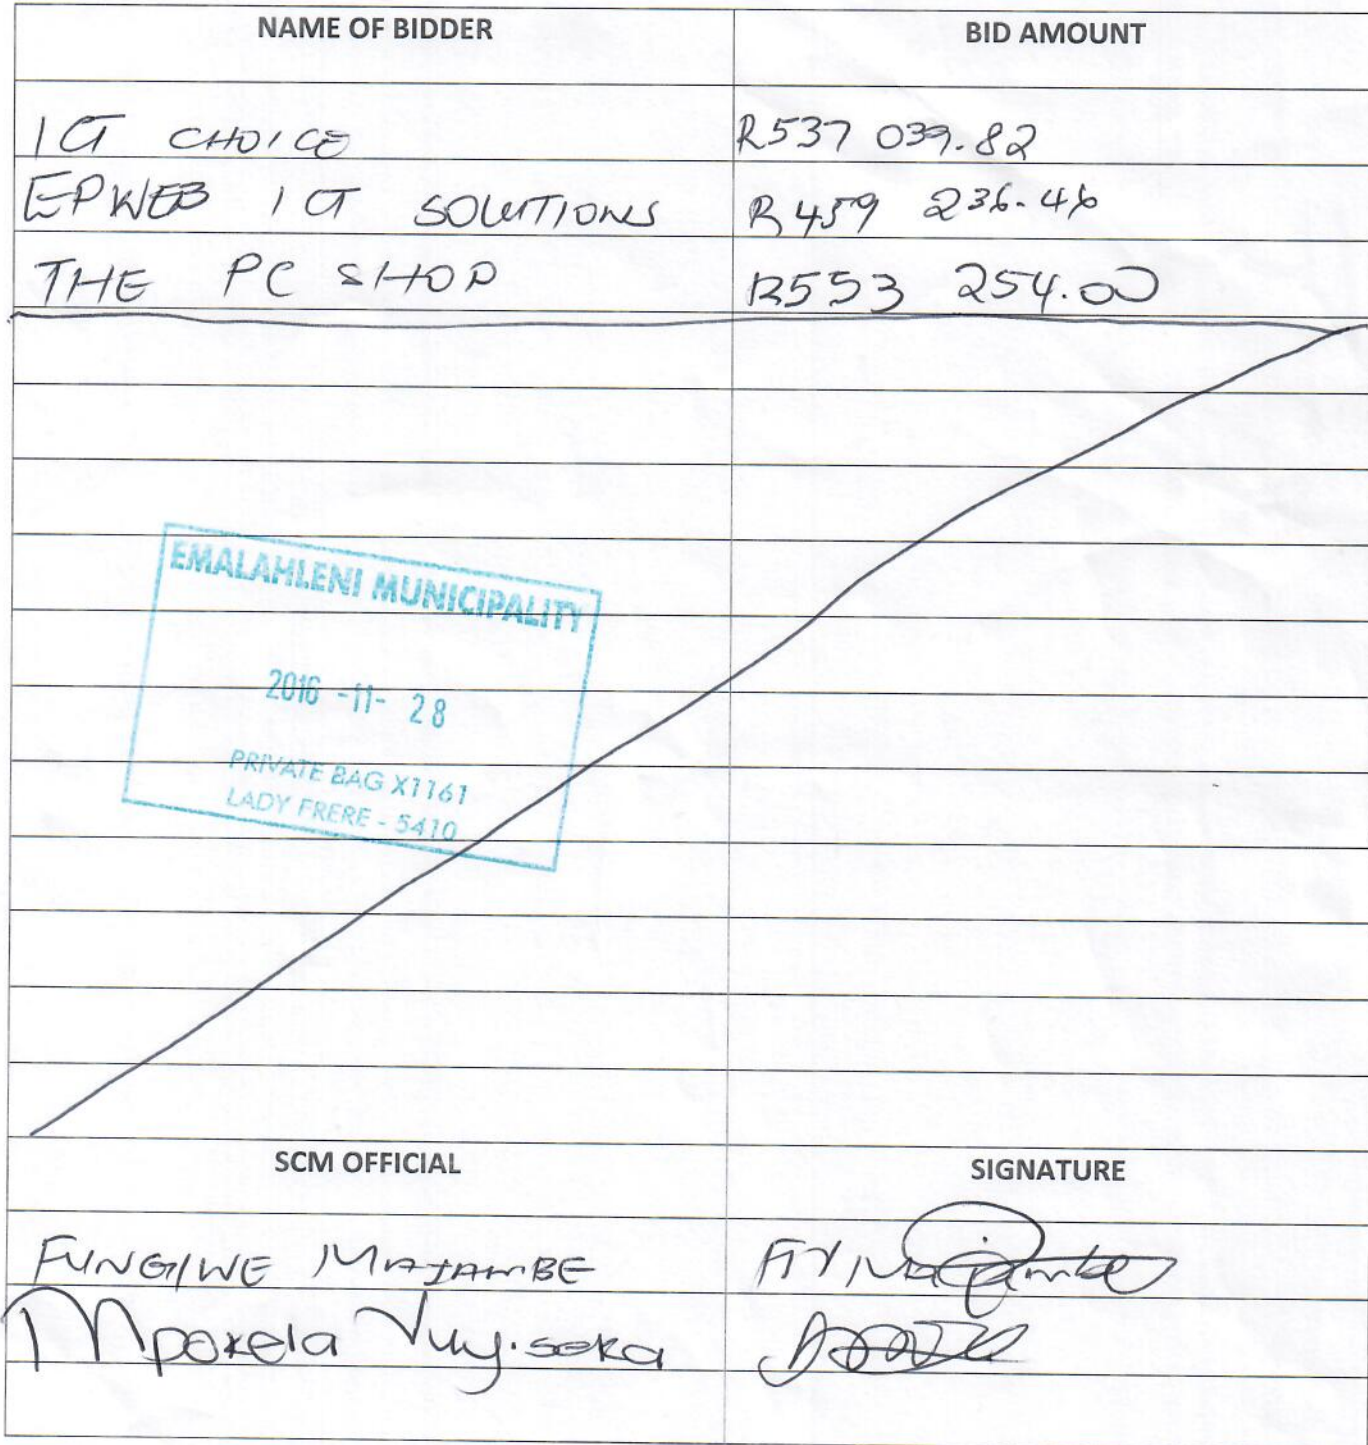 NAME OF BIDDER BID AMOUNT
ICT CHOICE R537 039.82
EPWEB ICT SOLUTIONS R459 236.46
THE PC SHOP R553 254.00
EMALAHLENI MUNICIPALITY
2016 -11- 28
PRIVATE BAG X1161
LADY FRERE - 5410
SCM OFFICIAL SIGNATURE
FUNGIWE MAJAMBE
Mpokela Vuyiseka